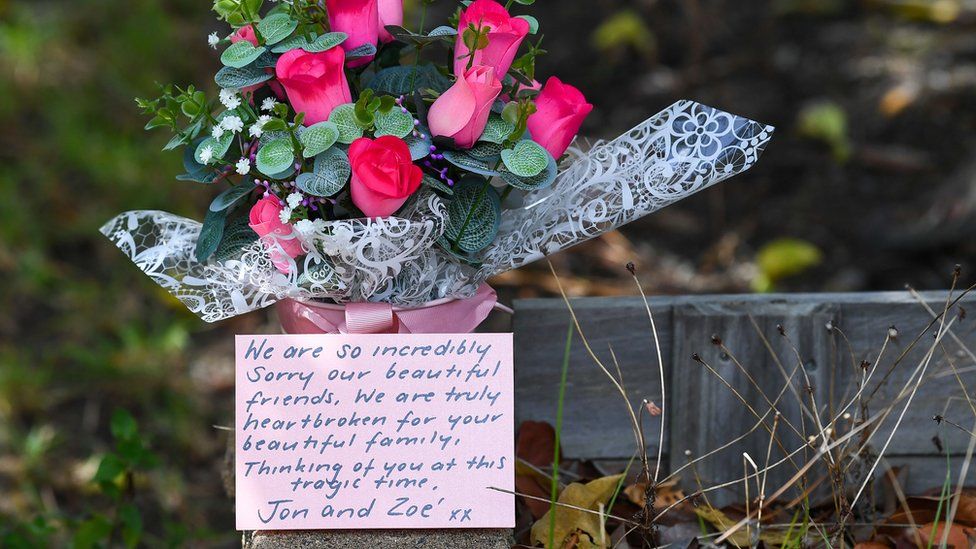 We are so incredibly
Sorry our beautiful
friends. We are truly
heartbroken for your
beautiful family.
Thinking of you at this
tragic time.
Jon and Zoé xx